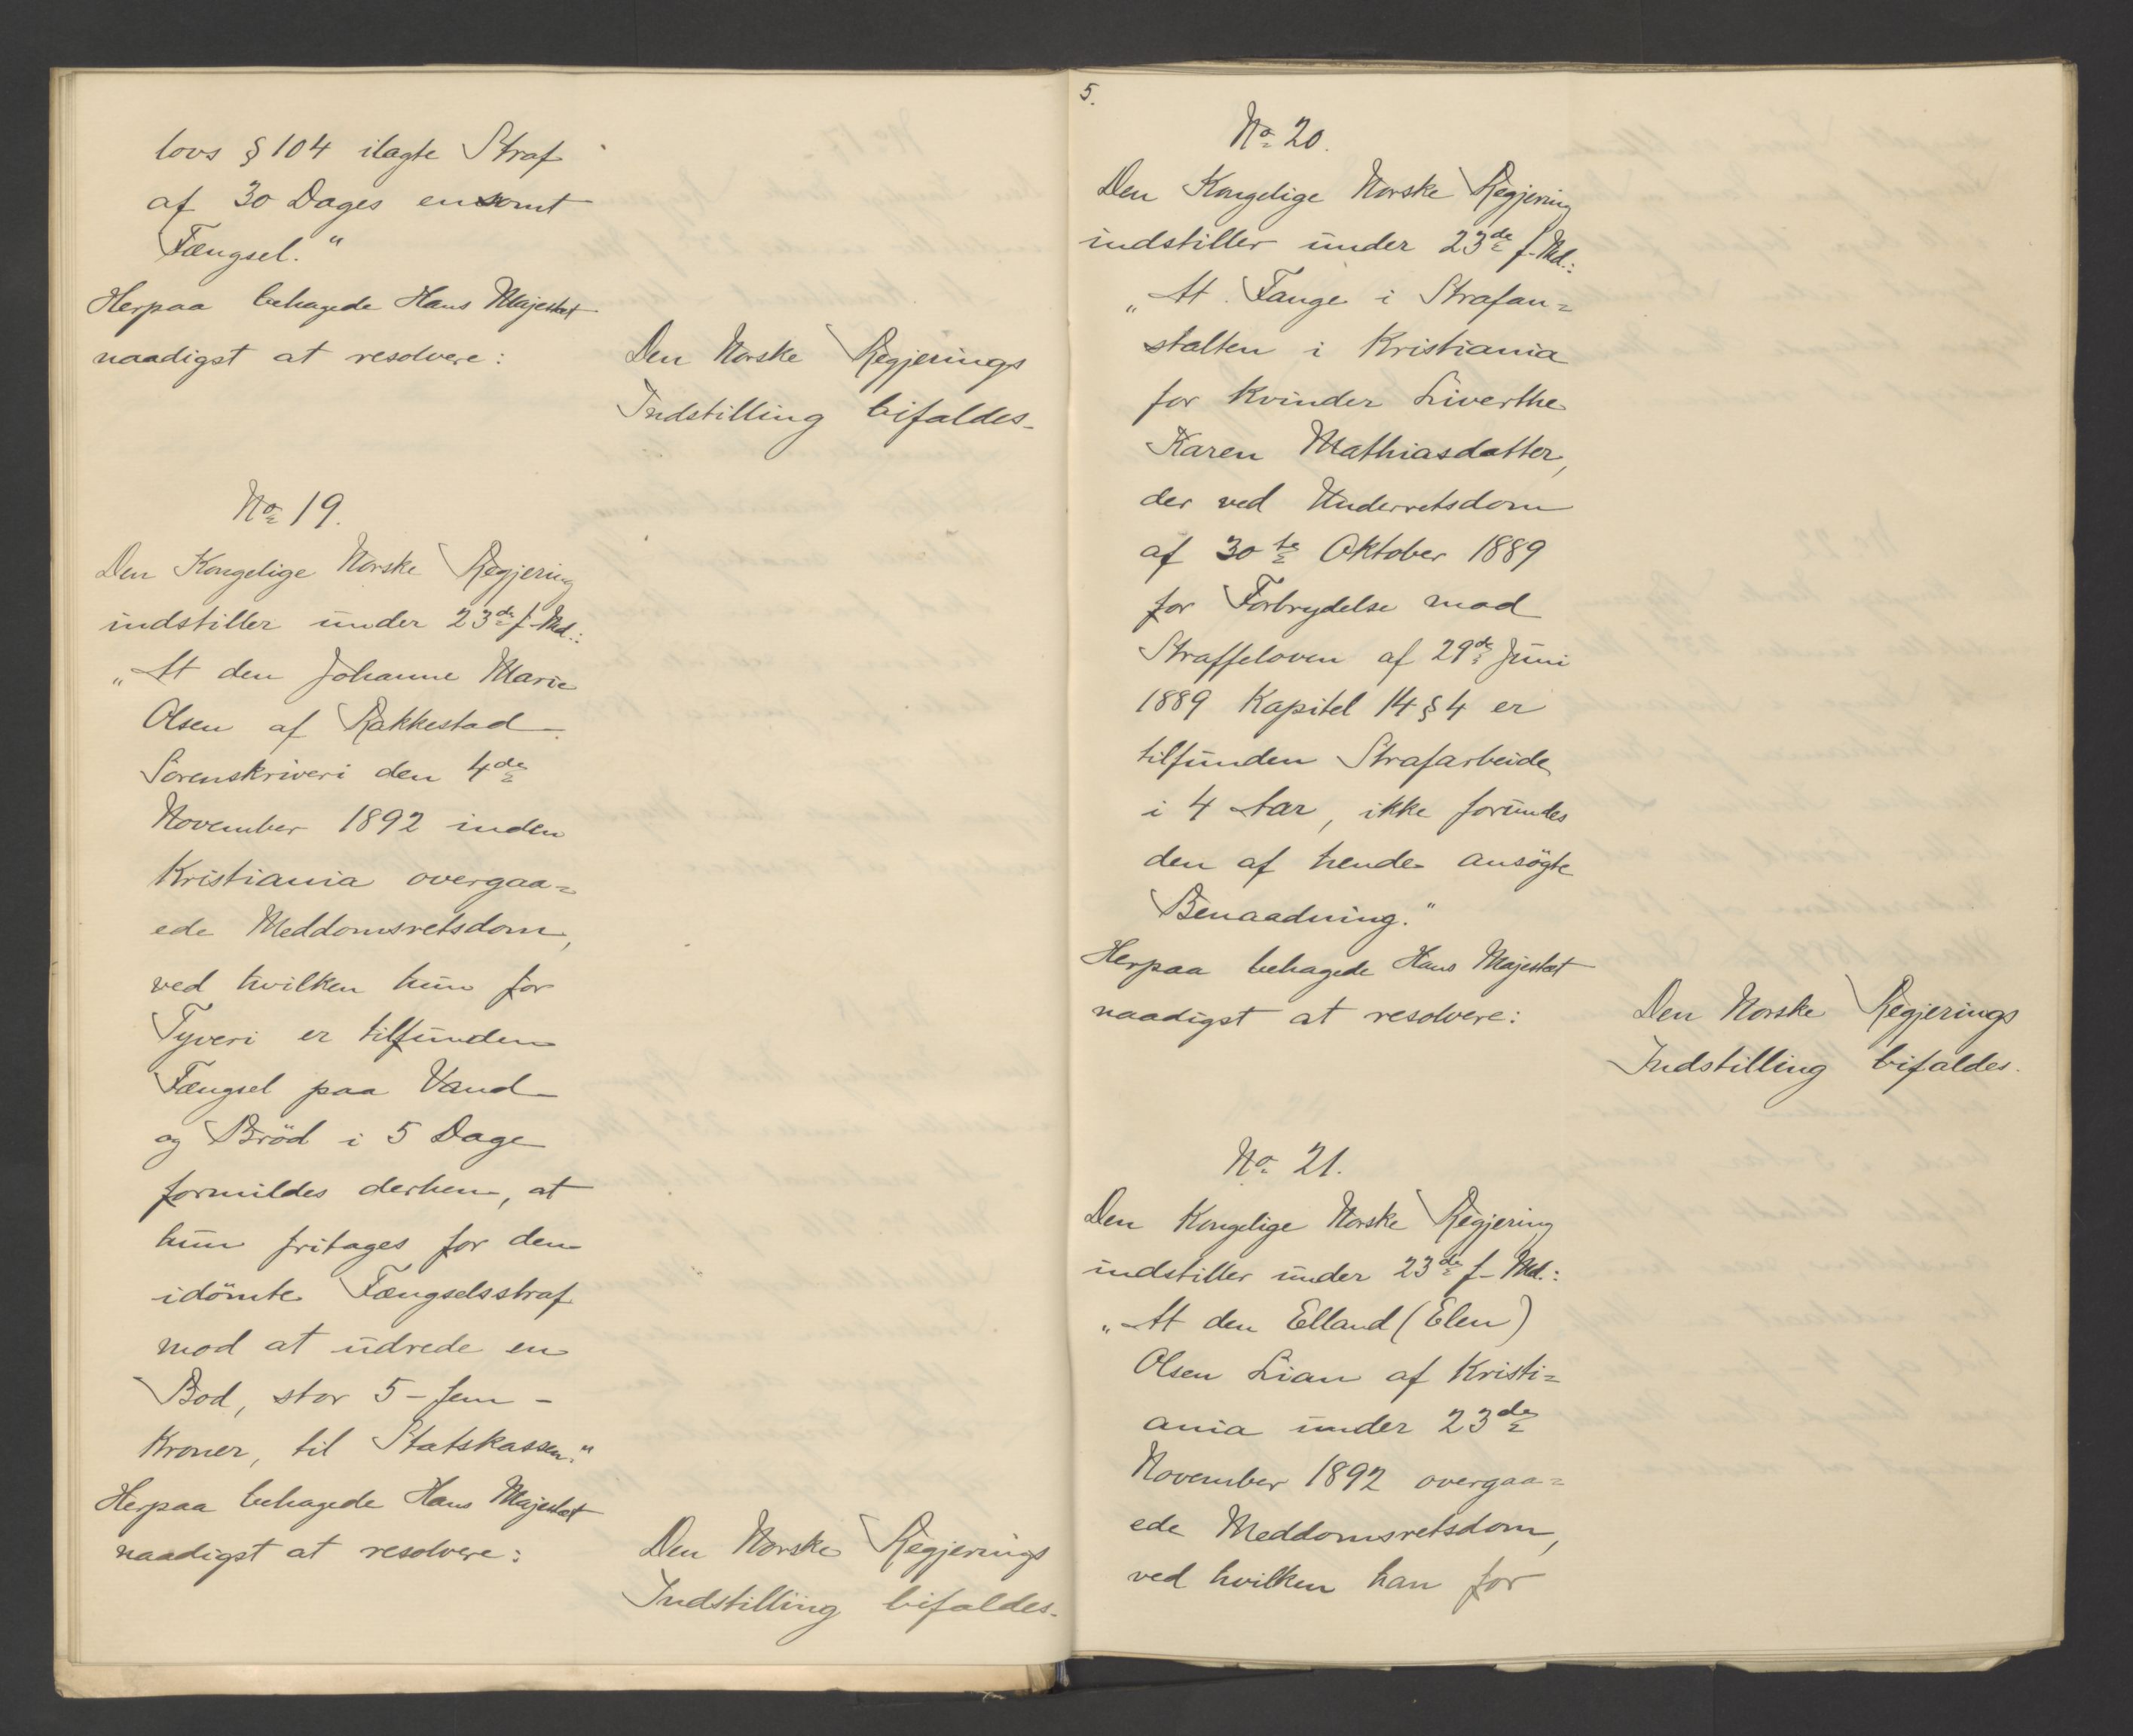 lovs § 104 ilagte Straf
af 30 Dages ensomt
Fængsel."
Herpaa behagede Hans Majestæt
naadigst at resolvere:
Den Norske Regjerings
Indstilling bifaldes.
No 19.
Den Kongelige Norske Regjering
indstiller under 23de f. Md.:
„At den Johanne Marie
Olsen af Rakkestad
Sorenskriveri den 4de
November 1892 inden
Kristiania overgaa=
ede Meddomsretsdom,
ved hvilken hun for
Tyveri er tilfunden
Fængsel paa Vand
og Bröd i 5 Dage
formildes derhen, at
hun fritages for den
idömte Fængselsstraf
mod at udrede en
Bod, stor 5 - fem -
Kroner, til Statskassen."
Herpaa behagede Hans Majestæt
naadigst at resolvere:
Den Norske Regjerings
Indstilling bifaldes.
5.
No 20.
Den Kongelige Norske Regjering
indstiller under 23de f. Md.:
„At Fange i Strafan=
stalten i Kristiania
for Kvinder Liverthe
Karen Mathiasdatter,
der ved Underretsdom
af 30te Oktober 1889
for Forbrydelse mod
Straffeloven af 29de Juni
1889 Kapitel 14 § 4 er
tilfunden Strafarbeide
i 4 Aar, ikke forundes
den af hende ansögte
Benaadning."
Herpaa behagede Hans Majestæt
naadigst at resolvere:
Den Norske Regjerings
Indstilling bifaldes.
No 21.
Den Kongelige Norske Regjering
indstiller under 23de f. Md.:
„At den Elland (Elen)
Olsen Lian af Kristi=
ania under 23de
November 1892 overgaa=
ede Meddomsretsdom,
ved hvilken han for